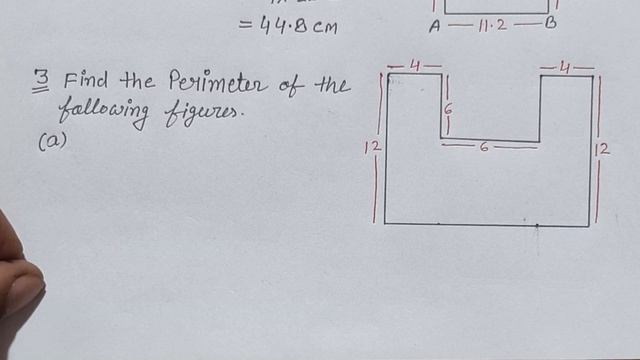 = 44.8 cm
A 11.2 B
3 Find the Perimeter of the
following figures.
(a)
4 4
6
6
12 12